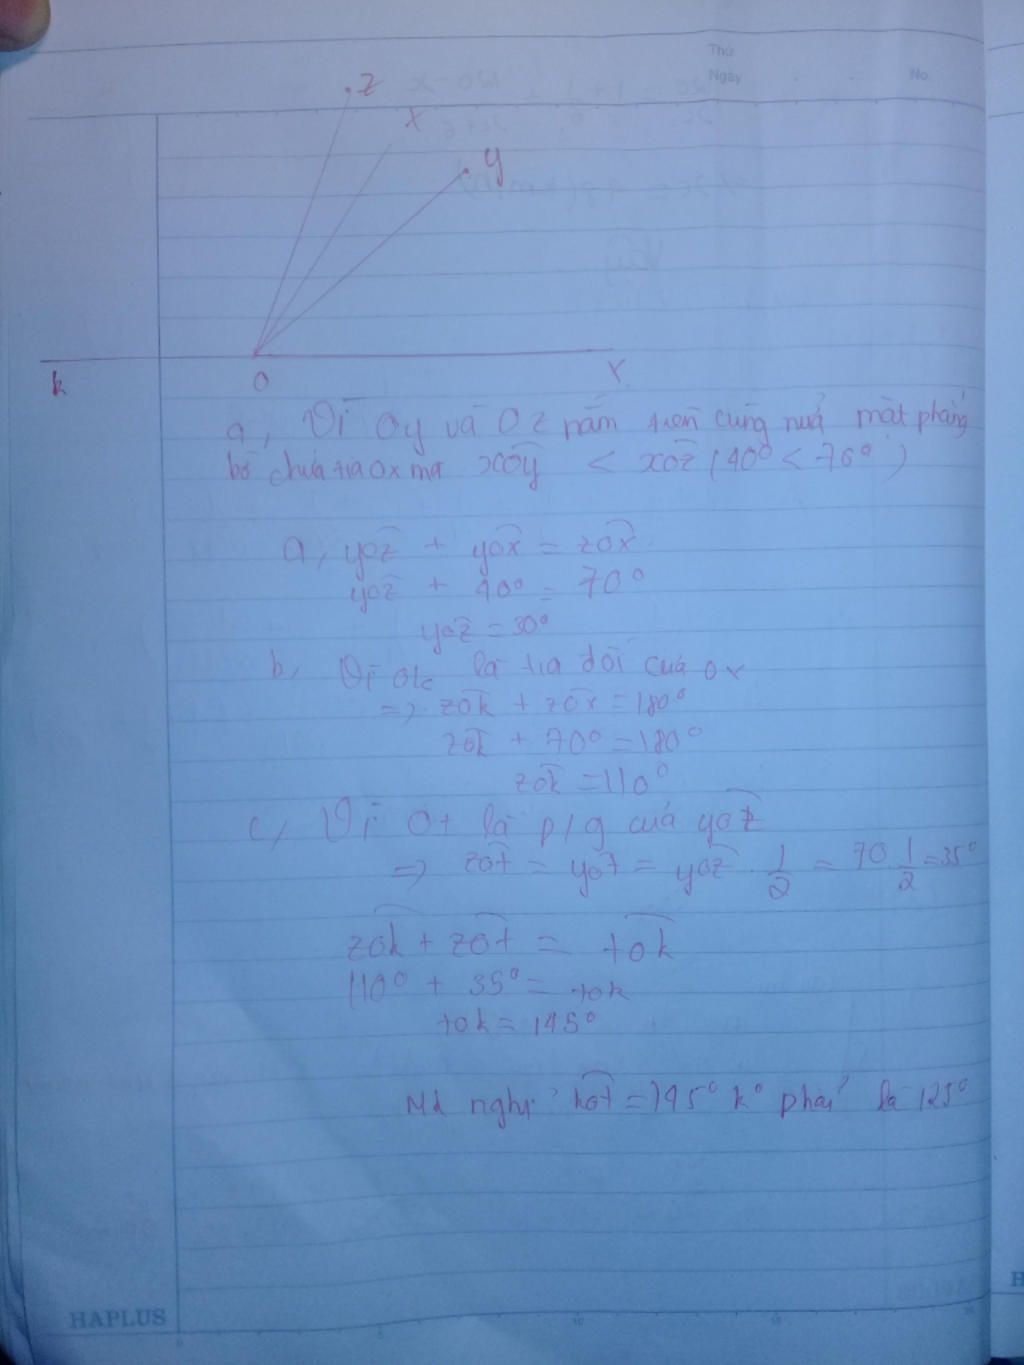 Thứ
Ngày
No.
z
x
y
k
O
x
a, Vì Oy và Oz nằm trên cùng nửa mặt phẳng
bờ chứa tia Ox mà xOy < xOz (40° < 70°)
a, yOz + yOx = zOx
yOz + 40° = 70°
yOz = 30°
b, Vì Ok là tia đối của Ox
=> zOk + zOx = 180°
zOk + 70° = 180°
zOk = 110°
c, Vì Ot là p/g của yOz
=> zOt = yOt = yOz . 1/2 = 70 1/2 = 35°
zOk + zOt = tOk
110° + 35° = tOk
tOk = 145°
Mà nghĩ kOt = 145° k° phải là 125°
HAPLUS